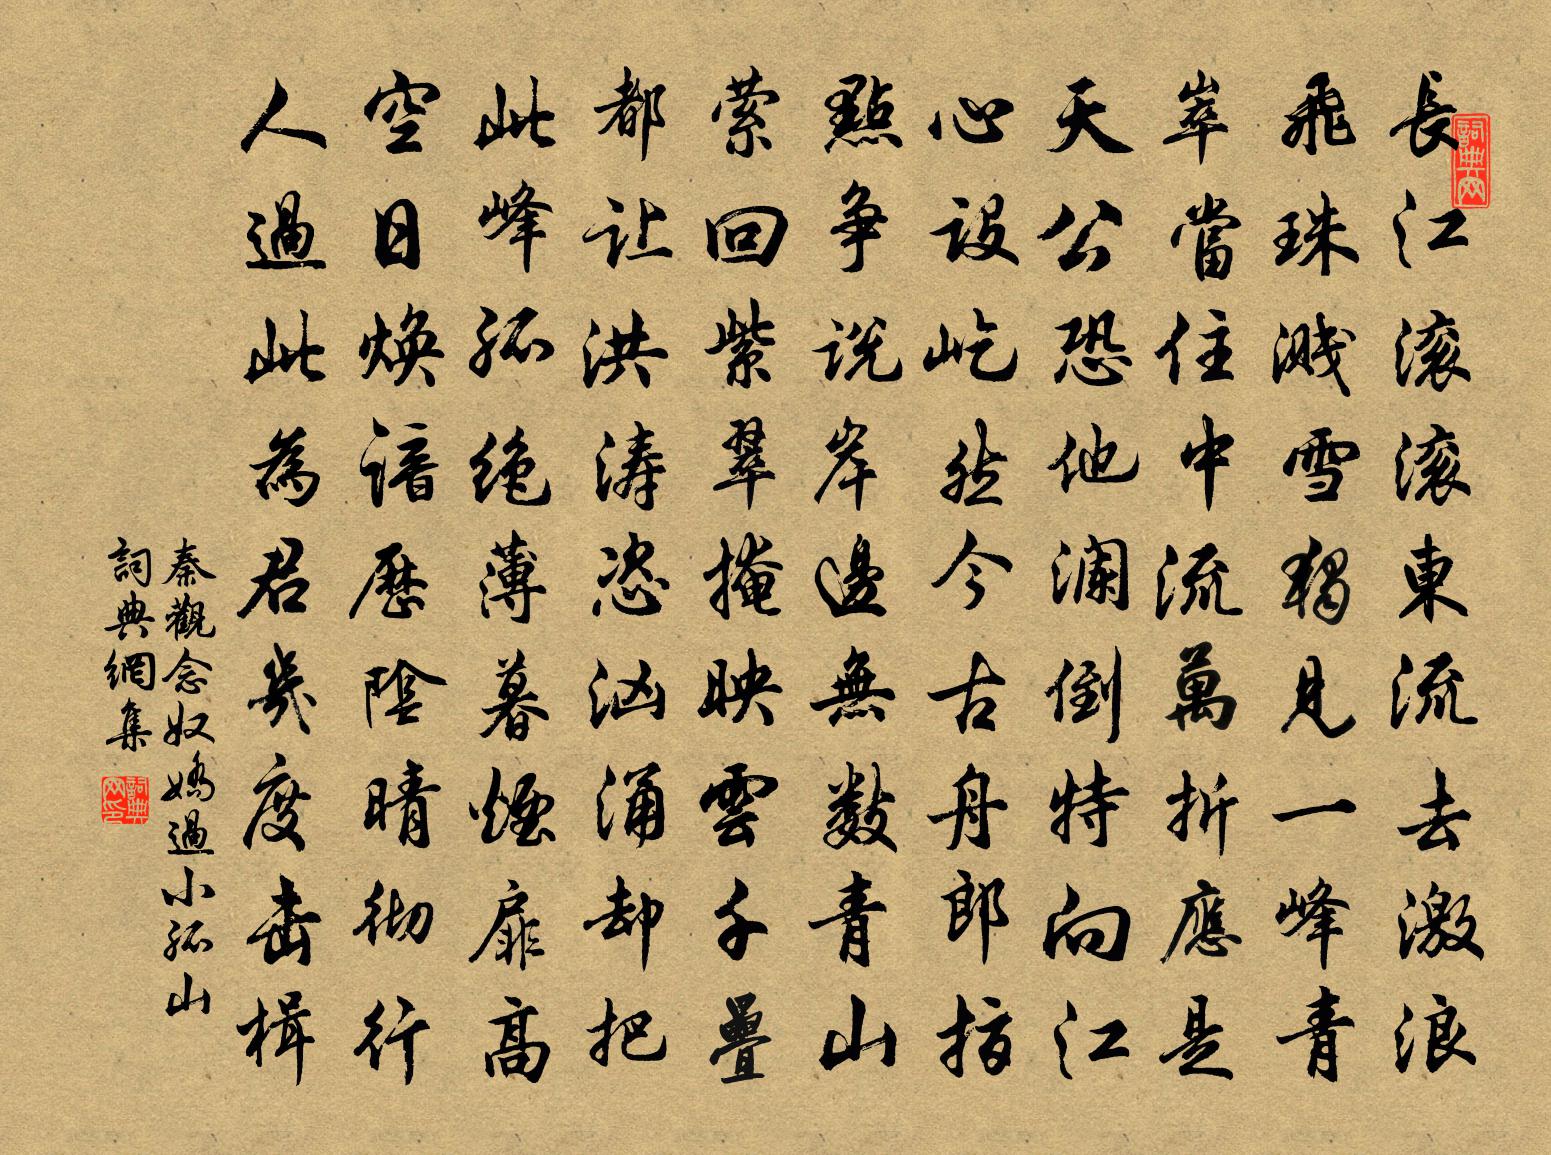 長江滚滚東流去激浪
飛珠濺雪獨見一峰青
崒當住中流萬折應是
天公恐他澜倒特向江
心設屹然今古舟郎指
點争説岸邊無數青山
萦回紫翠掩映雲千疊
都让洪涛恣汹涌却把
此峰孤绝薄暮煙扉高
空日焕谙歷陰晴彻行
人過此為君幾度击楫
秦觀念奴嬌過小孤山
詞典網集
詞典网
詞典网印